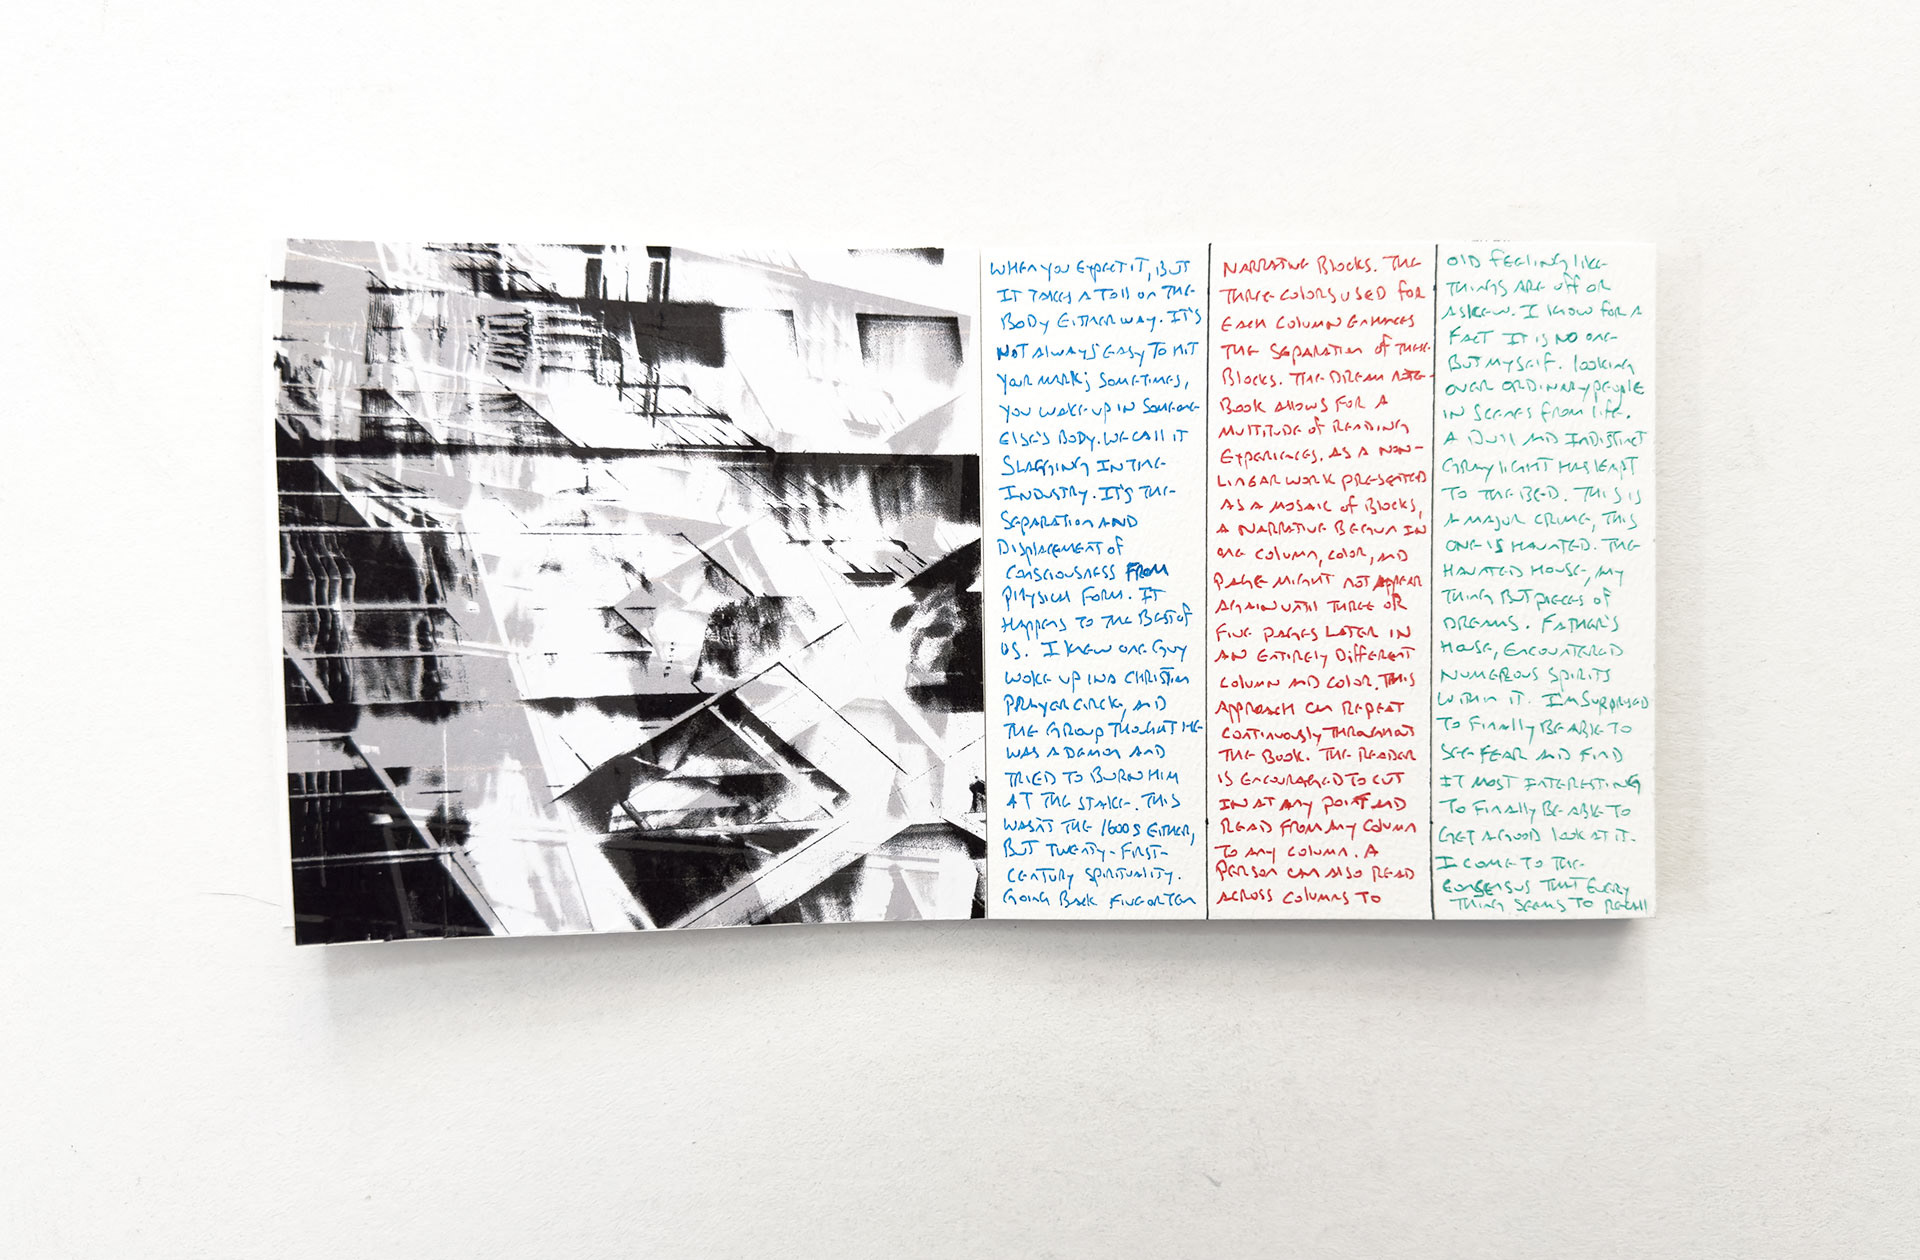 WHEN YOU EXPECT IT, BUT
IT TAKES A TOLL ON THE
BODY EITHER WAY. IT'S
NOT ALWAYS EASY TO HIT
YOUR MARK; SOMETIMES,
YOU WAKE UP IN SOMEONE
ELSE'S BODY. WE CALL IT
SLAGGING IN THE
INDUSTRY. IT'S THE
SEPARATION AND
DISPLACEMENT OF
CONSCIOUSNESS FROM
PHYSICAL FORM. IT
HAPPENS TO THE BEST OF
US. I KNEW ONE GUY
WOKE UP IN A CHRISTIAN
PRAYER CIRCLE, AND
THE GROUP THOUGHT HE
WAS A DEMON AND
TRIED TO BURN HIM
AT THE STAKE. THIS
WASN'T THE 1600S EITHER,
BUT TWENTY-FIRST-
CENTURY SPIRITUALITY.
GOING BACK FIVE OR TEN
NARRATIVE BLOCKS. THE
THREE COLORS USED FOR
EACH COLUMN ENHANCES
THE SEPARATION OF THESE
BLOCKS. THE DREAM
BOOK ALLOWS FOR A
MULTITUDE OF READING
EXPERIENCES. AS A NON-
LINEAR WORK PRESENTED
AS A MOSAIC OF BLOCKS,
A NARRATIVE BEGUN IN
ONE COLUMN, COLOR, AND
PAGE MIGHT NOT APPEAR
AGAIN UNTIL THREE OR
FIVE PAGES LATER IN
AN ENTIRELY DIFFERENT
COLUMN AND COLOR. THIS
APPROACH CAN REPEAT
CONTINUOUSLY THROUGHOUT
THE BOOK. THE READER
IS ENCOURAGED TO CUT
IN AT ANY POINT AND
READ FROM ANY COLUMN
TO ANY COLUMN. A
PERSON CAN ALSO READ
ACROSS COLUMNS TO
OLD FEELING LIKE
THINGS ARE OFF OR
ASKEW. I KNOW FOR A
FACT IT IS NO ONE
BUT MYSELF. LOOKING
OVER ORDINARY PEOPLE
IN SCENES FROM LIFE.
A DULL AND INDISTINCT
GRAY LIGHT HAS LEAPT
TO THE BED. THIS IS
A MAJOR CRIME, THIS
ONE IS HAUNTED. THE
HAUNTED HOUSE, ANY
THING BUT PIECES OF
DREAMS. FATHER'S
HOUSE, ENCOUNTERED
NUMEROUS SPIRITS
WITHIN IT. I'M SURPRISED
TO FINALLY BE ABLE TO
SEE FEAR AND FIND
IT MOST INTERESTING
TO FINALLY BE ABLE TO
GET A GOOD LOOK AT IT.
I COME TO THE
CONSENSUS THAT EVERY
THING SEEMS TO RECALL